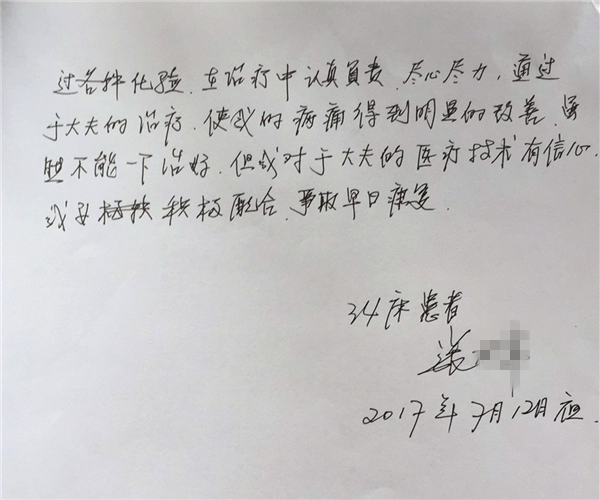 过各种化验，在治疗中认真负责，尽心尽力，通过
于大夫的治疗，使我的病痛得到明显的改善，虽
然不能一下治好，但我对于大夫的医疗技术有信心，
我要积极配合，争取早日康复。
34床患者
2017年7月12日